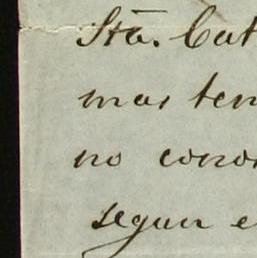 Sta. Cat
mas ten
no cono
segun e